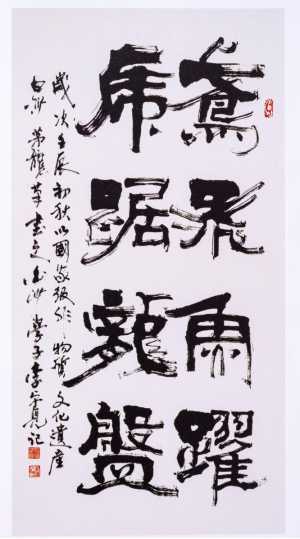 鳶飛魚躍
虎踞龍盤
歲次壬辰初秋以國家級非物質文化遺產
白沙茅龍筆書之白沙學子李 記